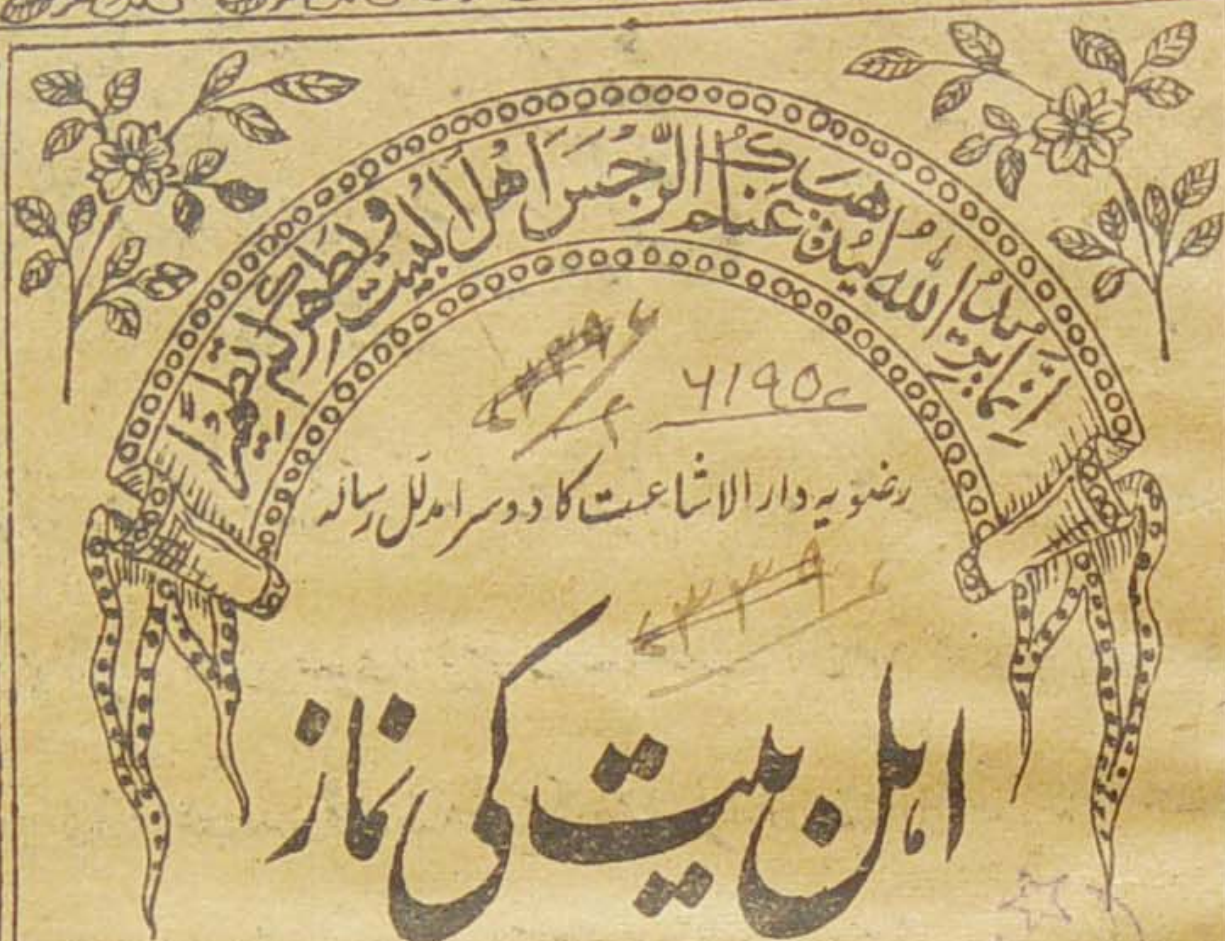 اِنَّمَا یُرِیْدُ اللّٰهُ لِیُذْهِبَ عَنْكُمُ الرِّجْسَ اَهْلَ الْبَیْتِ وَ یُطَهِّرَكُمْ تَطْهِیْرًا
61905
رضویہ دار الاشاعت کا دوسرا مدلل رسالہ
اہل بیت کی نماز